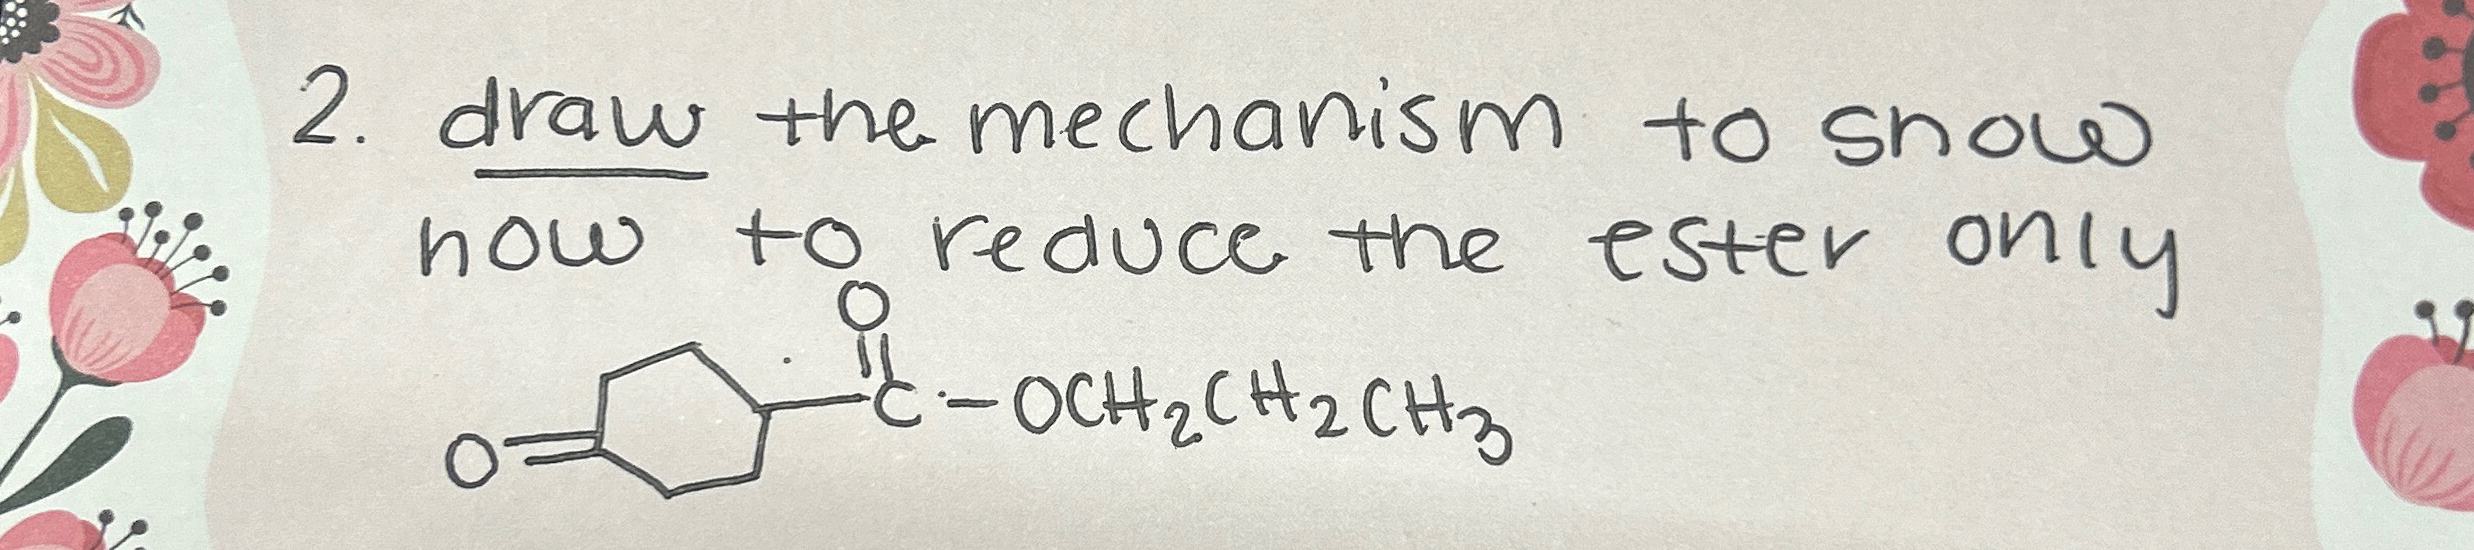 2. draw the mechanism to show
how to reduce the ester only
O
O=
C-OCH₂CH₂CH₃